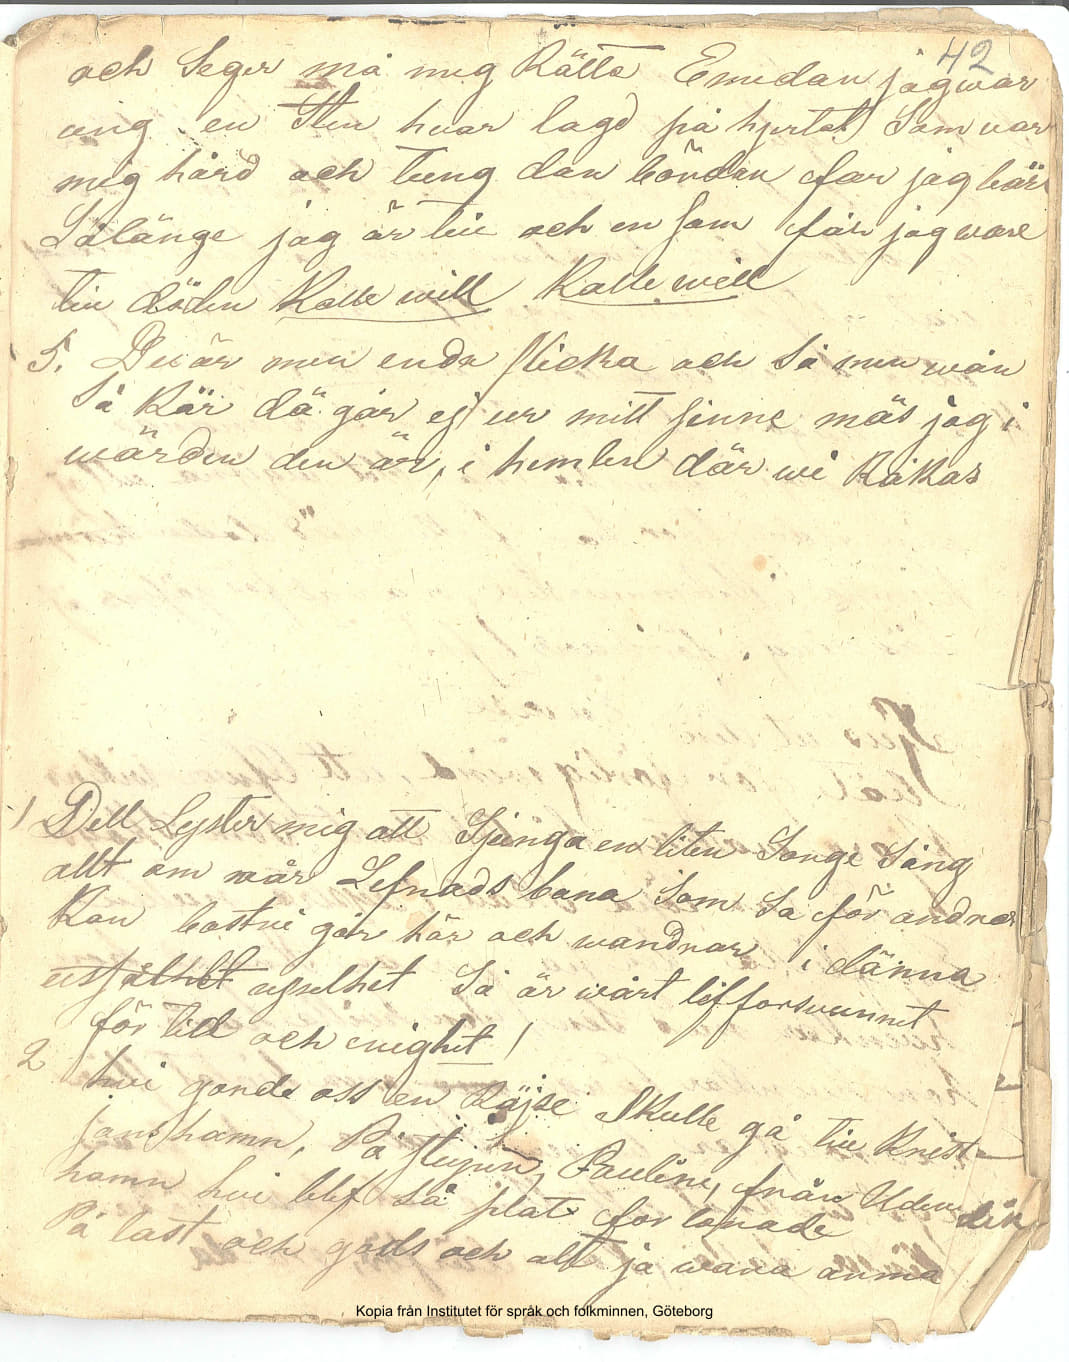 42
och Seger må mig Rätta Emedan jag war
ung en Sten hwar lagd på hjertat Som war
mig hård och tung dän bördan får jag bär
Sålänge jag är tiu och en sam får jag ware
tiu döden Kalle will Kalle will
5. Du är min enda flicka och Så min wän
Så Kär dä går ej ur mitt sinne mäs jag i
wärden den är, i himlen där wi Råkas
1 Dell Lyster mig att Sjunga en liten Songe Sång
allt om wår Lefnads bana Som Sa för andrar
Kan bastvi går här och wandrar i dänna
uselhet Så är wårt lif forsvunnet
för tid och evighet /
2 hvi gorde oss en Räjse Skulle gå tiu Krist
jans hamn, På skepen, Pauline, från Udew
hamn hvi blef Så plat for lanade
På last och gods och alt ja wana anma
Kopia från Institutet för språk och folkminnen, Göteborg